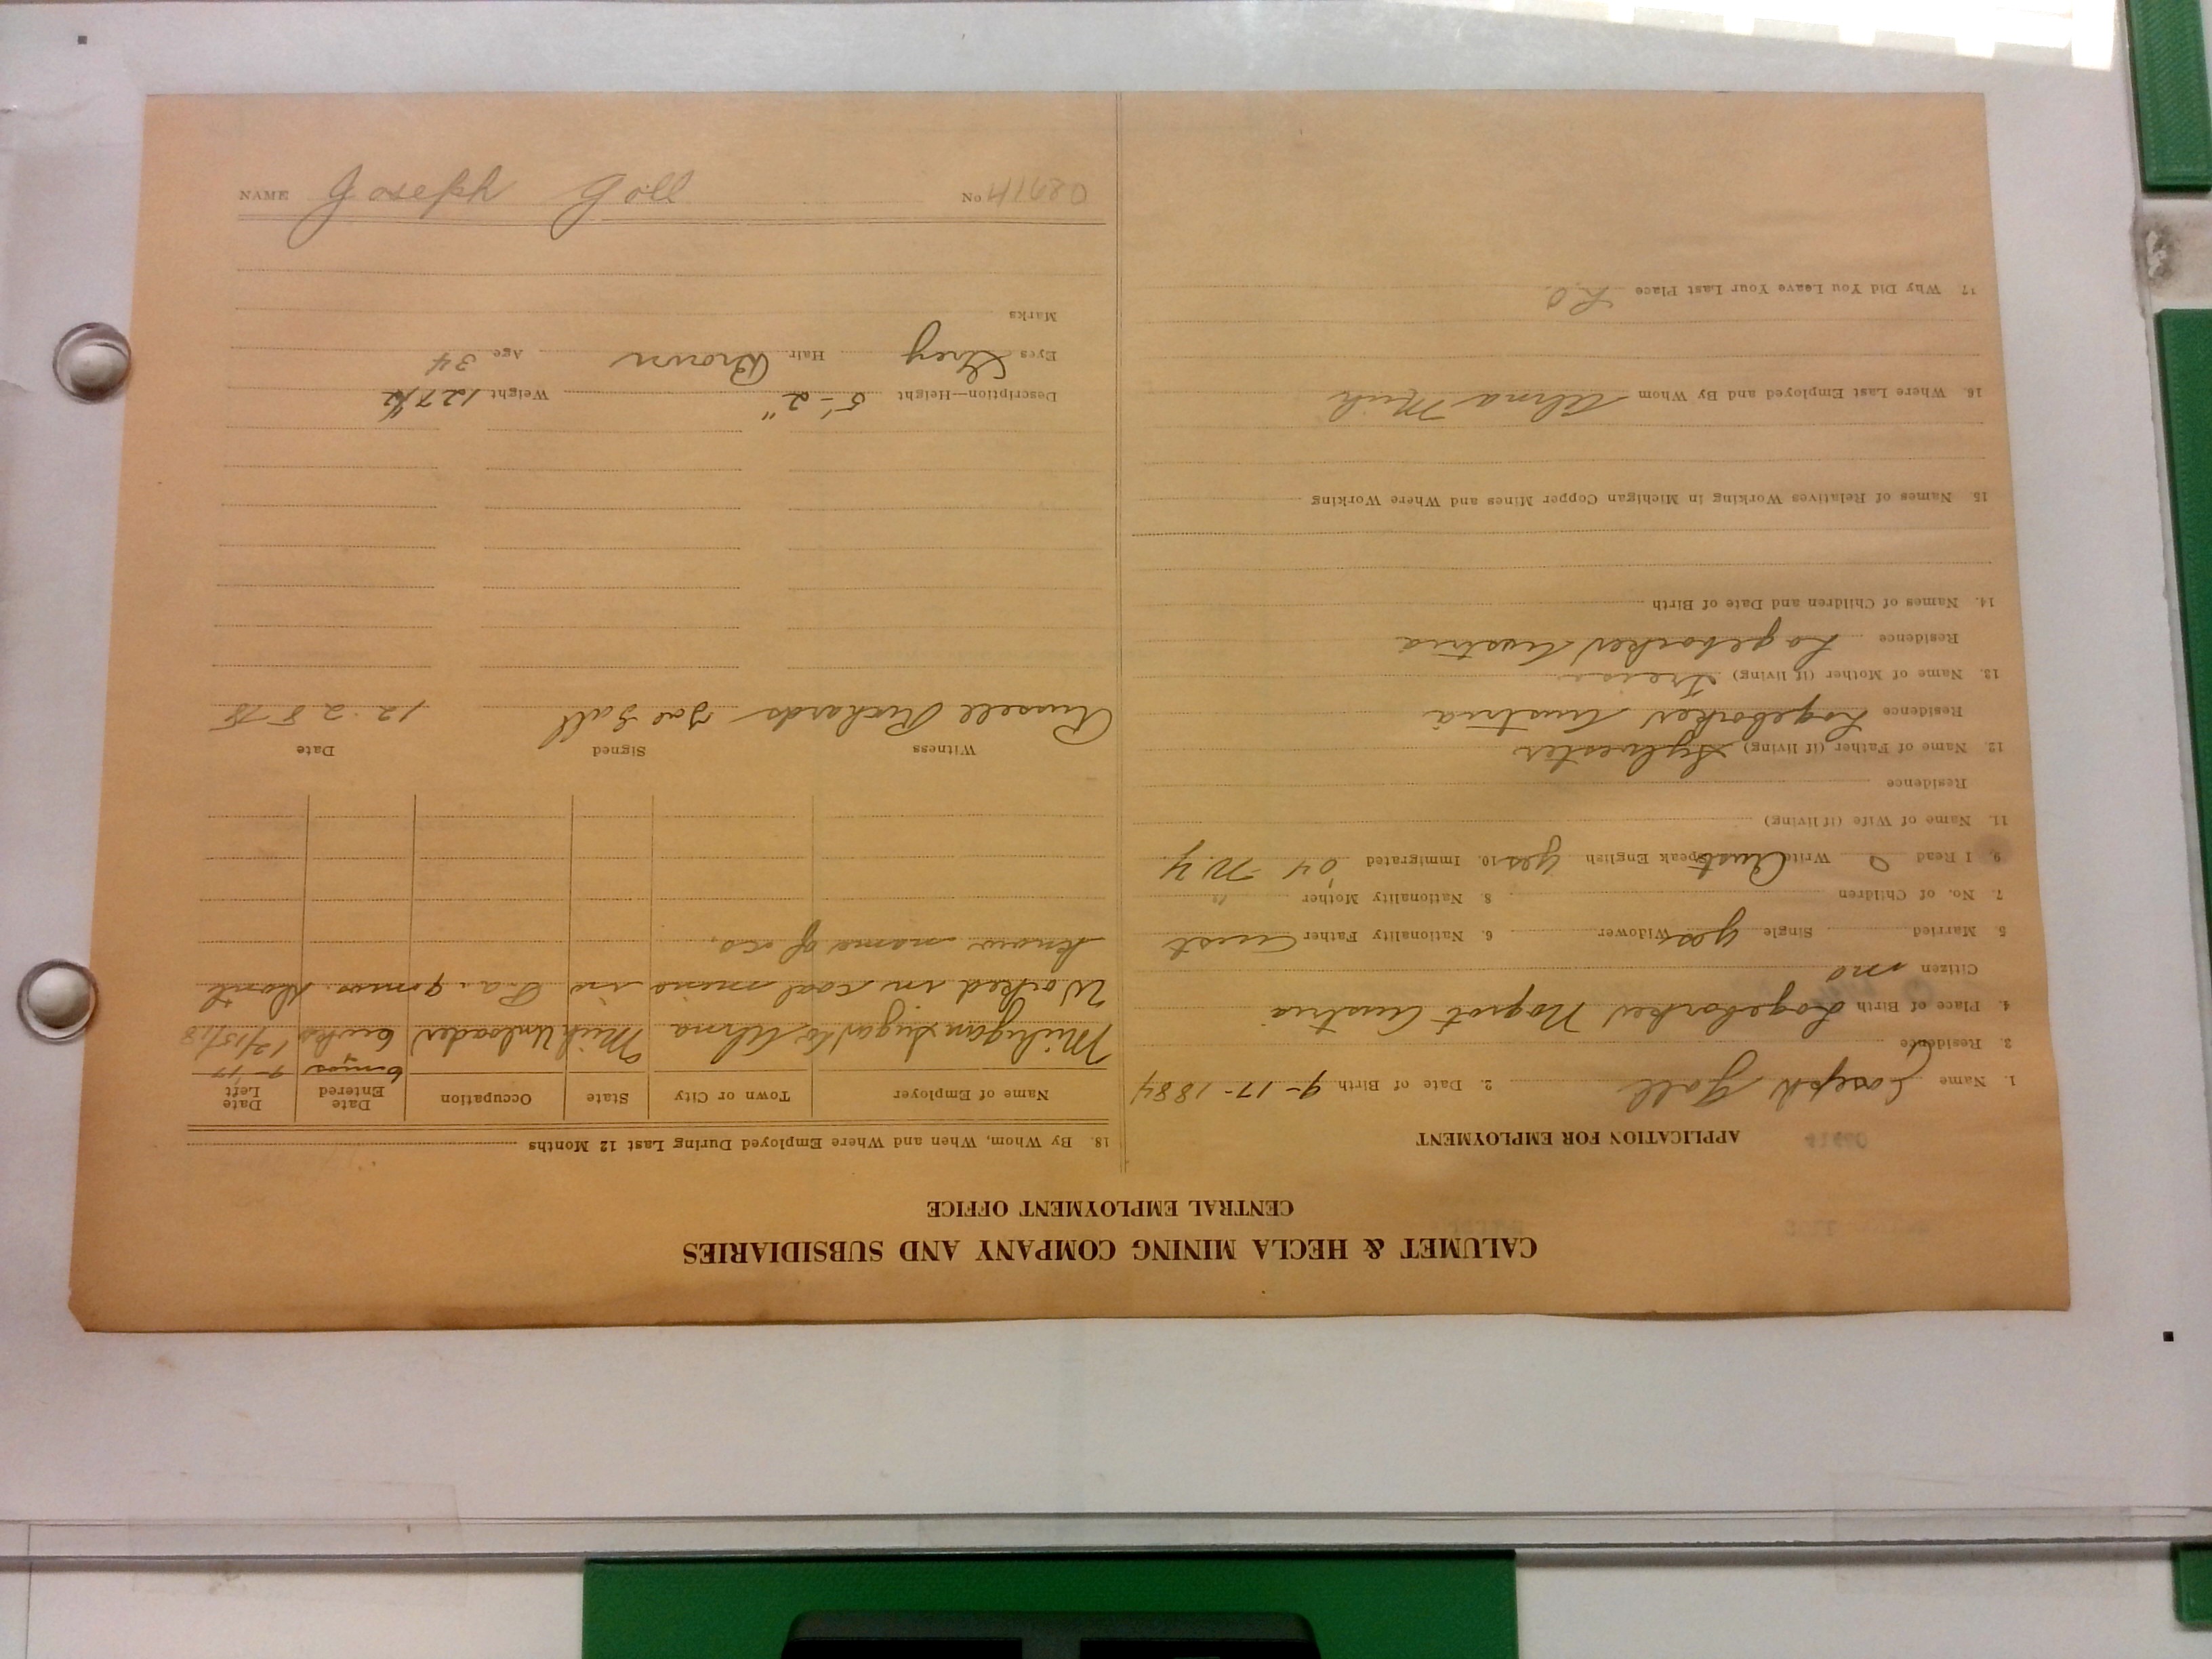 CALUMET & HECLA MINING COMPANY AND SUBSIDIARIES
CENTRAL EMPLOYMENT OFFICE
APPLICATION FOR EMPLOYMENT
1. Name Joseph Gall 2. Date of Birth 9-17-1884
3. Residence
4. Place of Birth Austria
Citizen no
5. Married Single yes Widower 6. Nationality Father Aust
7. No. of Children 8. Nationality Mother "
9. I Read Write Aust Speak English yes 10. Immigrated '04 N.Y.
11. Name of Wife (if living)
Residence
12. Name of Father (if living) Sylvester
Residence Austria
13. Name of Mother (if living)
Residence Austria
14. Names of Children and Date of Birth
15. Names of Relatives Working in Michigan Copper Mines and Where Working
16. Where Last Employed and By Whom Alma Mich
17 Why Did You Leave Your Last Place
18. By Whom, When and Where Employed During Last 12 Months
Name of Employer Town or City State Occupation Date Entered Date Left
6 mos 9-'17
Michigan Sugar Co Alma Mich Unloader 6 wks 12/15/18
Worked in coal mine in Pa. 9 mos. Dont
know name of co.
Witness Signed Date
Russell Richards Joe Gall 12-28-18
Description—Height 5'-2" Weight 127 1/2
Eyes Grey Hair Brown Age 34
Marks
NAME Joseph Goll No 41680